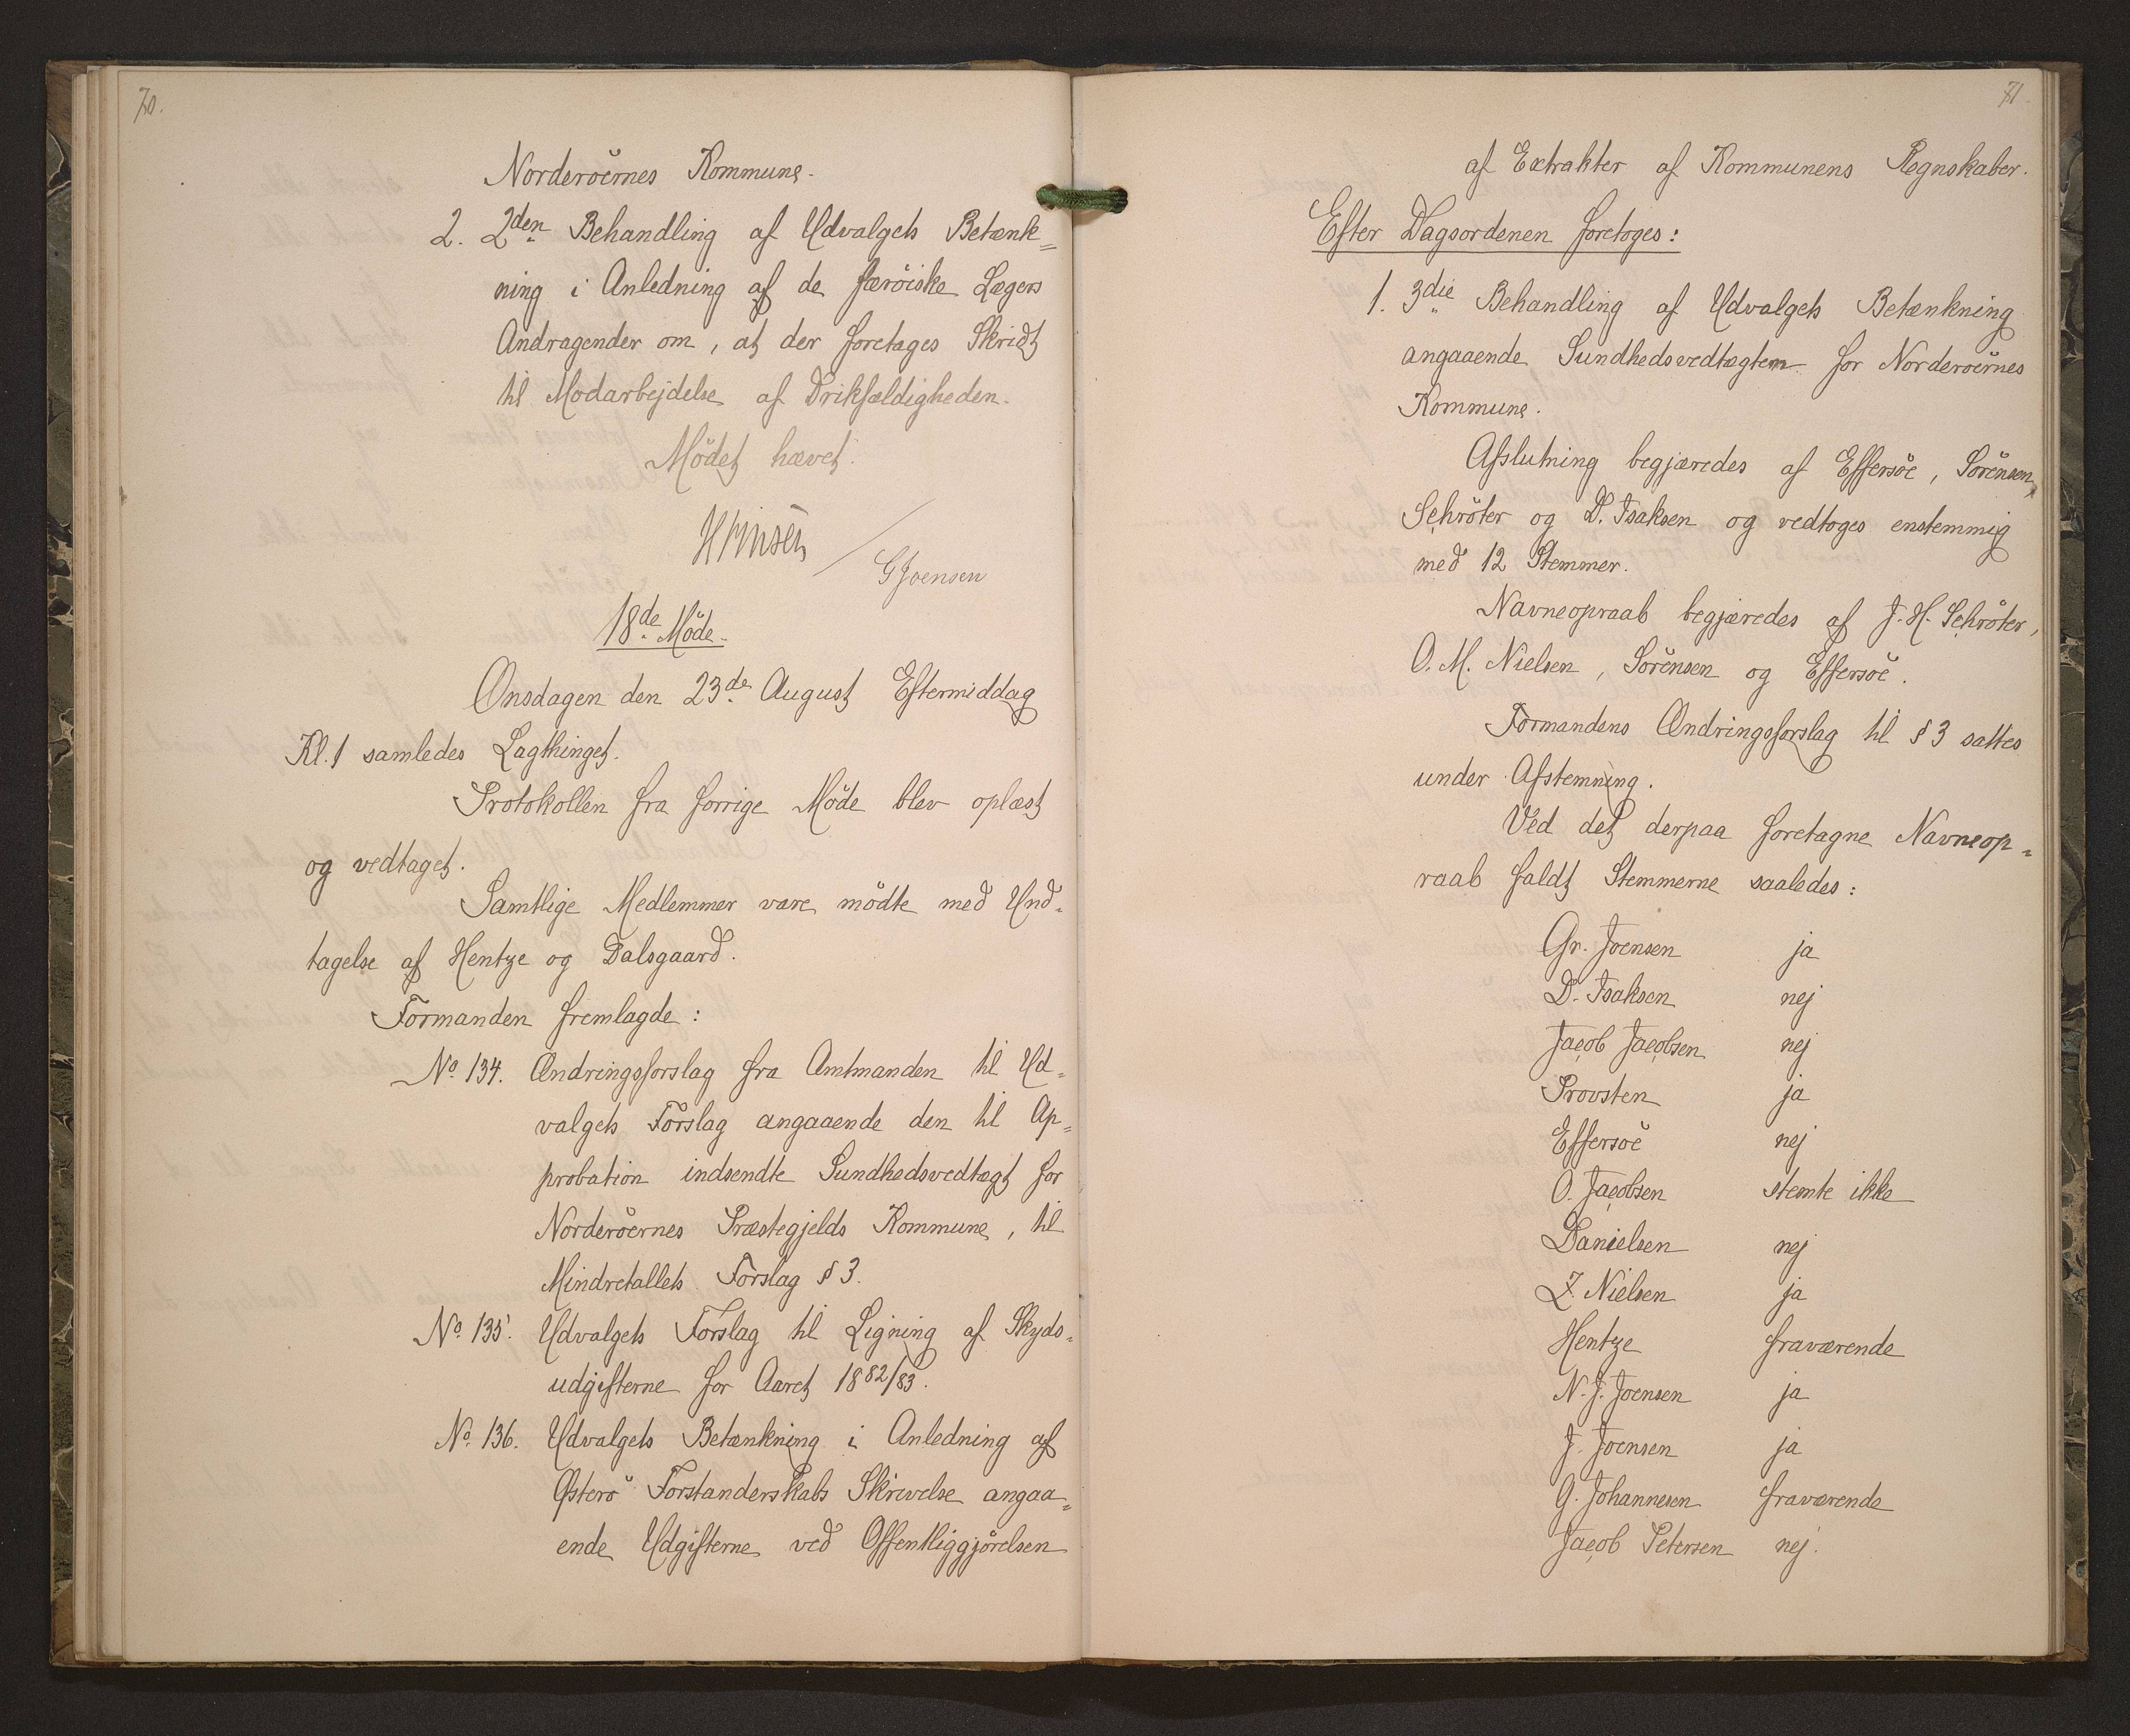 70.
Norderöernes Kommune.
2. 2den Behandling af Udvalgets Betænk=
ning i Anledning af de færöiske Lægers
Andragender om, at der foretages Skridt
til Modarbejdelse af Drikfældigheden.
Mödet hævet.
GJoensen
18de Möde.
Onsdagen den 23de August Eftermiddag
Kl. 1 samledes Lagthinget.
Protokollen fra forrige Möde blev oplæst
og vedtaget.
Samtlige Medlemmer vare mödte med Und=
tagelse af Hentze og Dalsgaard.
Formanden fremlagde:
No. 134. Ændringsforslag fra Amtmanden til Ud=
valgets Forslag angaaende den til Ap=
probation indsendte Sundhedsvedtægt for
Norderöernes Præstegjelds Kommune, til
Mindretallets Forslag § 3.
No. 135. Udvalgets Forslag til Ligning af Skyds=
udgifterne for Aaret 1882/83.
No. 136. Udvalgets Betænkning i Anledning af
Österö Forstanderskabs Skrivelse angaa=
ende Udgifterne ved Offentliggjörelsen
71.
af Extrakter af Kommunens Regnskaber.
Efter Dagsordenen foretoges:
1. 3die Behandling af Udvalgets Betænkning
angaaende Sundhedsvedtægten for Norderöernes
Kommune.
Afslutning begjæredes af Effersöe, Sörensen,
Schröter og D. Isaksen og vedtoges enstemmig
med 12 Stemmer.
Navneopraab begjæredes af J. H. Schröter,
O. M. Nielsen, Sörensen og Effersöe.
Formandens Ændringsforslag til § 3 sattes
under Afstemning.
Ved det derpaa foretagne Navneop=
raab faldt Stemmerne saaledes:
Gr. Joensen ja
D. Isaksen nej
Jacob Jacobsen nej
Provsten ja
Effersöe nej
O. Jacobsen stemte ikke
Danielsen nej
Z. Nielsen ja
Hentze fraværende
N. J. Joensen ja
J. Joensen ja
G. Johannesen fraværende
Jacob Petersen nej.